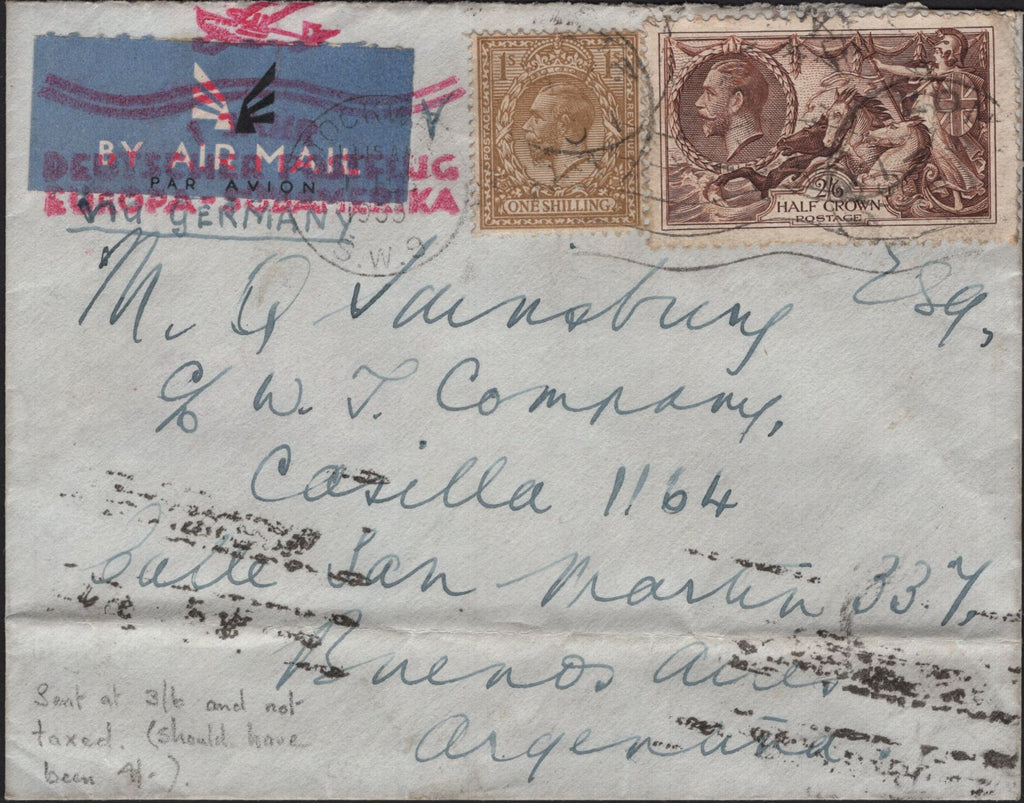 BY AIR MAIL
PAR AVION
DEUTSCHER POSTFLUG
EUROPA-SÜDAMERIKA
Via GERMANY
S.W.9
1S
POSTAGE
REVENUE
ONE SHILLING
2/6
HALF CROWN
POSTAGE
M. Q Sainsbury Esq,
c/o W. T. Company,
Casilla 1164
Calle San Martin 337,
Buenos Aires
Argentina.
Sent at 3/6 and not
taxed. (Should have
been 4/-).